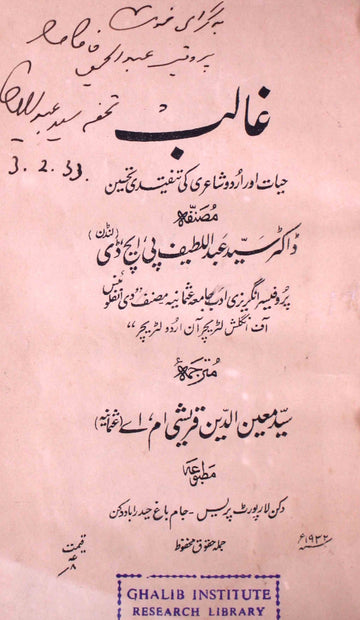 به گرامی خدمت
پروفیسر عبدالحق
تحفہ سید عبداللطیف
3.2.33.
غالب
حیات اور اردو شاعری کی تنقیدی تحسین
مصنفہ
ڈاکٹر سید عبد اللطیف پی، ایچ، ڈی (لندن)
پروفیسر انگریزی ادب جامعہ عثمانیہ مصنف "دی انفلوینس
آف انگلش لٹریچر آن اردو لٹریچر"
مترجمہ
سید معین الدین قریشی ام، اے (عثمانیہ)
مطبوعہ
دکن لا رپورٹ پریس - جام باغ حیدرآباد دکن
۱۹۳۲ء
جملہ حقوق محفوظ
قیمت
GHALIB INSTITUTE
RESEARCH LIBRARY